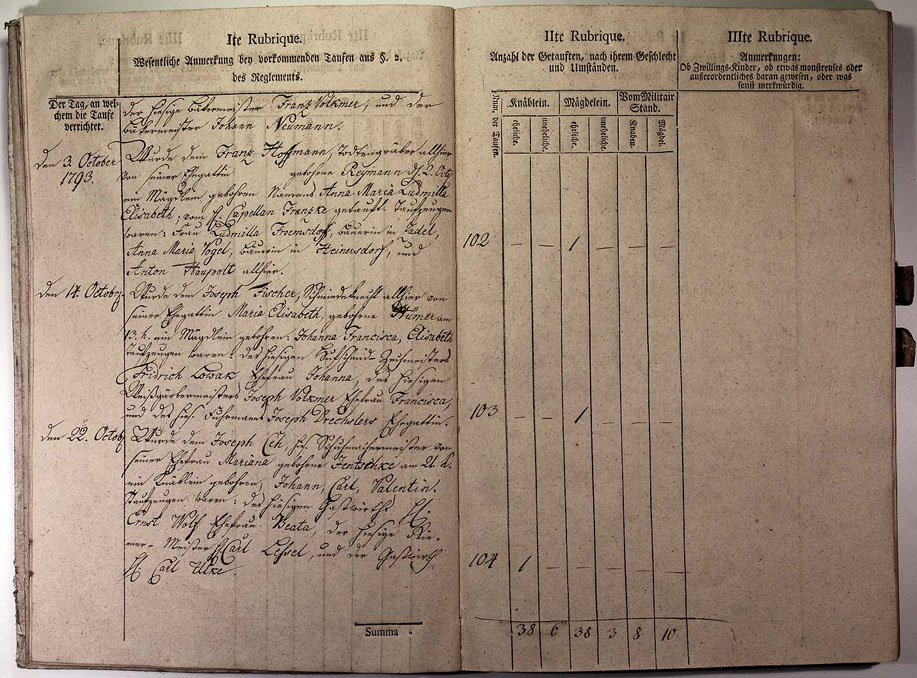 Ite Rubrique.
Wesentliche Anmerkung bey vorkommenden Taufen aus §. 2.
des Reglements.
Der Tag, an wel-
chem die Taufe
verrichtet.
der hiesige Bäkermeister Franz Volkmer, und der
Bäkermeister Johann Neümann.
den 3. October
1793.
Wurde dem Franz Hoffmann, Todtengräber allhier
von seiner Ehegattin gebohrne Reymann d. 2. Oct.
ein Mägdlein gebohren Namens Anna Maria Ludmilla
Elisabeth; vom H. Capellan Franzke getauft. Taufzeugen
waren: Frau Ludmilla Froemsdorf, Bäuerin in Zadel,
Anna Maria Vogel, Bäuerin in Heinersdorf, und
Anton Haupolt allhier.
den 14. Octobr.
Wurde dem Joseph Fischer, Schmiedeknecht allhier von
seiner Ehegattin Maria Elisabeth, gebohrne Hümer am
13. h. ein Mägdlein gebohren: Johanna Francisca, Elisabeth
Taufzeugen waren: des hiesigen
Fridrich Lowak Ehefrau Johanna, des hiesigen
Weißgärbermeisters Joseph Volkmer Ehefrau Francisca,
und des hies. Fuhrmanns Joseph Drechslers Ehegattin.
den 22. Octob.
Wurde dem Joseph Ceh, hies. Schuhmachermeister von
seiner Ehefrau Mariana gebohrne Jentschke am 21. h.
ein Knäblein gebohren, Johann, Carl, Valentin.
Taufzeugen waren: des hiesigen Gastwirths H.
Ernst Wolf Ehefrau Beata, der hiesige Rie-
mer-Meister H. Carl Lessel, und der Gastwirth
H. Carl Ulke.
Summa
IIte Rubrique.
Anzahl der Getauften, nach ihrem Geschlecht
und Umständen.
Num. der Taufen.
Knäblein. Mägdelein. Vom Militair
Stand.
eheliche. uneheliche. eheliche. uneheliche. Knaben. Mägdel.
102 — — 1 — — —
103 — — 1 — — —
104 1 — — — — —
38 6 38 3 8 10
IIIte Rubrique.
Anmerkungen:
Ob Zwillings-Kinder, ob etwas monstreuses oder
außerordentliches daran gewesen, oder was
sonst merkwürdig.